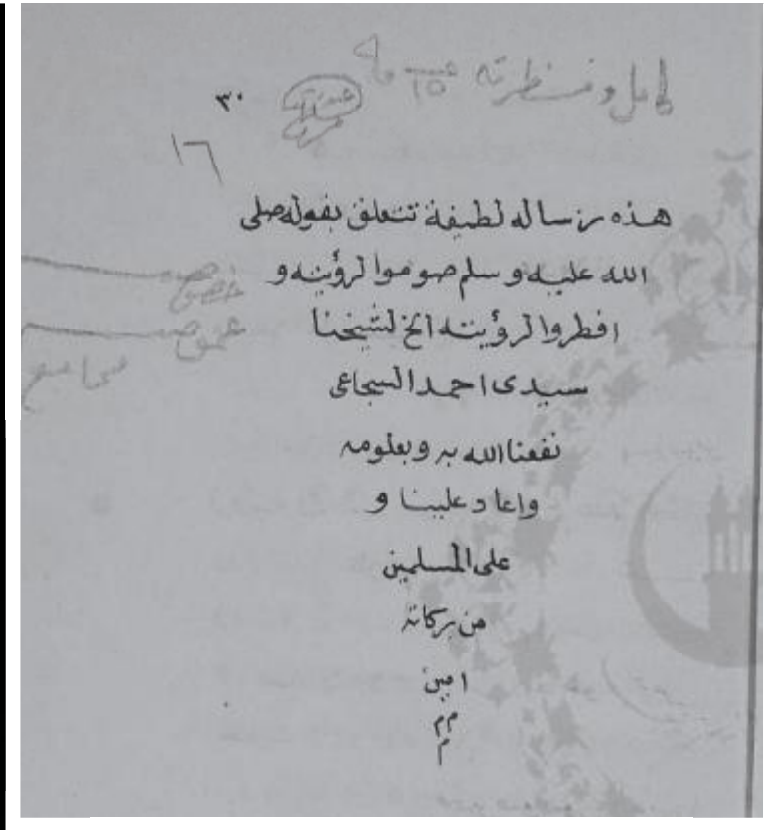 ٣٠
١٦
هذه رسالة لطيفة تتعلق بقوله صلى
الله عليه وسلم صوموا لرؤيته و
افطروا لرؤيته الخ لشيخنا
سيدى احمد السجاعى
نفعنا الله به وبعلومه
واعاد علينا و
على المسلمين
من بركاته
امين
م م
م